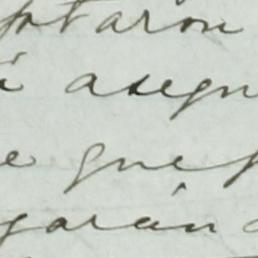 ptaron
i asegu
e que f
garán a